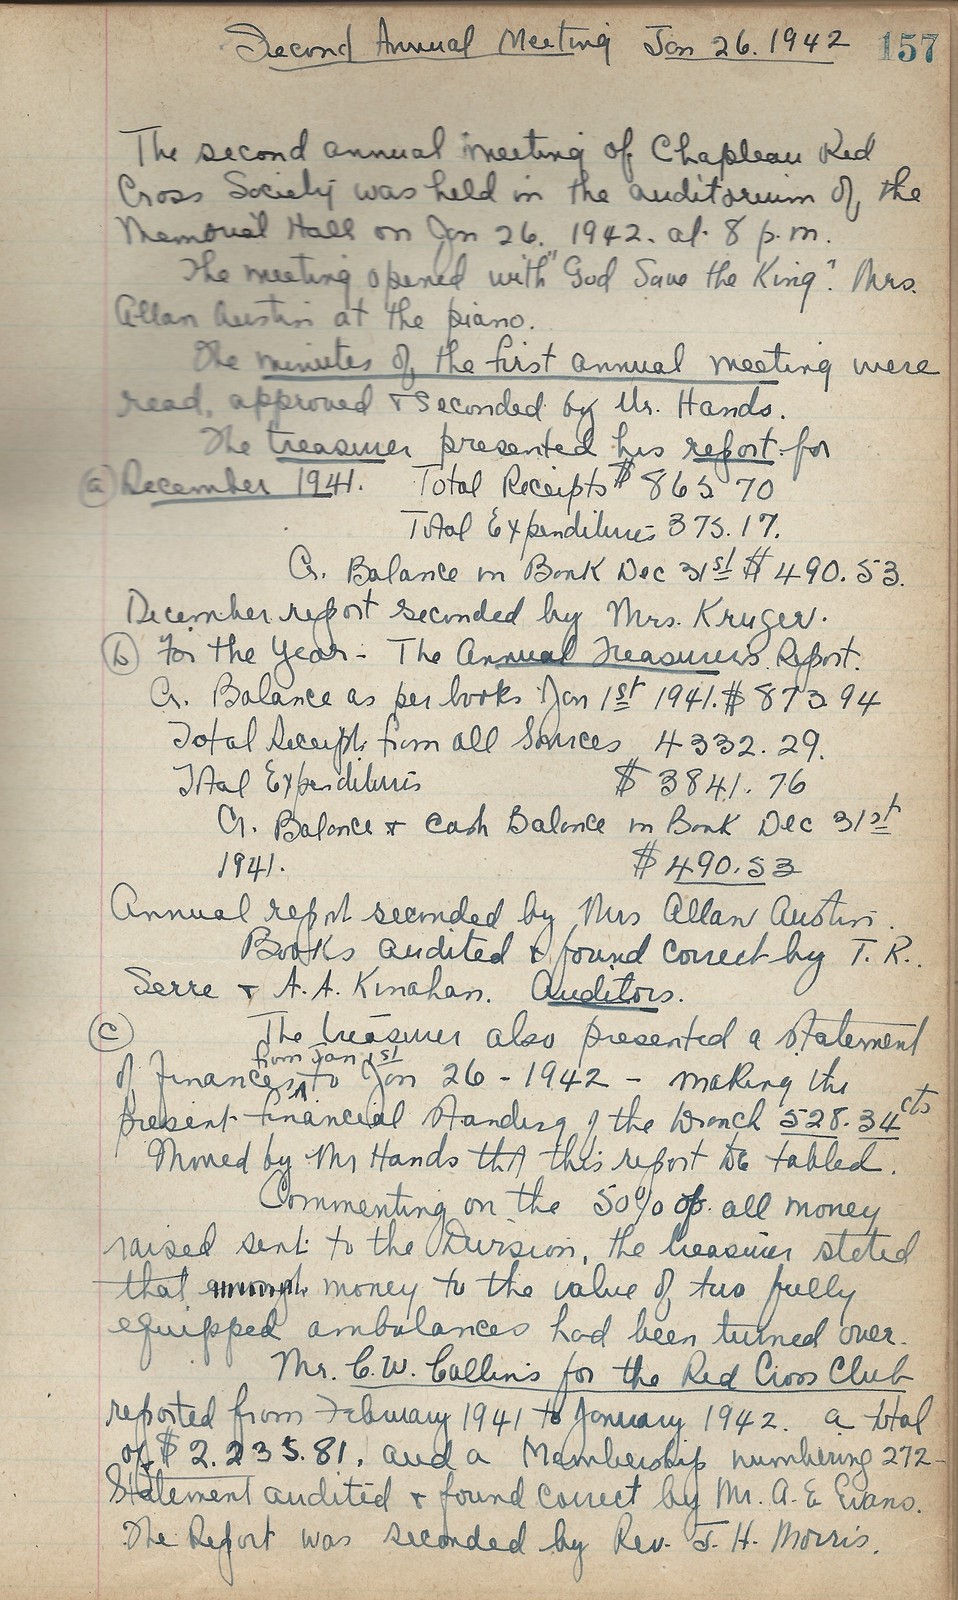 Second Annual Meeting Jan 26. 1942 157
The second annual meeting of Chapleau Red
Cross Society was held in the auditorium of the
Memorial Hall on Jan 26. 1942. at 8 p.m.
The meeting opened with "God Save the King". Mrs.
Allan Austin at the piano.
The minutes of the first annual meeting were
read, approved & seconded by Mr. Hands.
The treasurer presented his report for
(a) December 1941. Total Receipts $ 865 70
Total Expenditures 375.17.
Cr. Balance in Bank Dec 31st $ 490.53.
December report seconded by Mrs. Kruger.
(b) For the Year - The Annual Treasurers Report.
Cr. Balance as per books Jan 1st 1941. $ 873 94
Total Receipts from all Sources 4332.29.
Total Expenditures $ 3841.76
Cr. Balance & Cash Balance in Bank Dec 31st
1941. $ 490.53
Annual report seconded by Mrs Allan Austin.
Books audited & found correct by T. R.
Serre & A. A. Kinahan. Auditors.
(c) The treasurer also presented a statement
from Jan 1st
of finances to Jan 26 - 1942 - making the
present financial standing of the branch 528.34 cts
Moved by Mr Hands that this report be tabled.
Commenting on the 50% of all money
raised sent to the Division, the treasurer stated
that money to the value of two fully
equipped ambulances had been turned over.
Mr. C. W. Collins for the Red Cross Club
reported from February 1941 to January 1942. a total
of $ 2.235.81. and a Membership numbering 272 -
Statement audited & found correct by Mr. A. E Evans.
The Report was seconded by Rev. J. H. Morris.